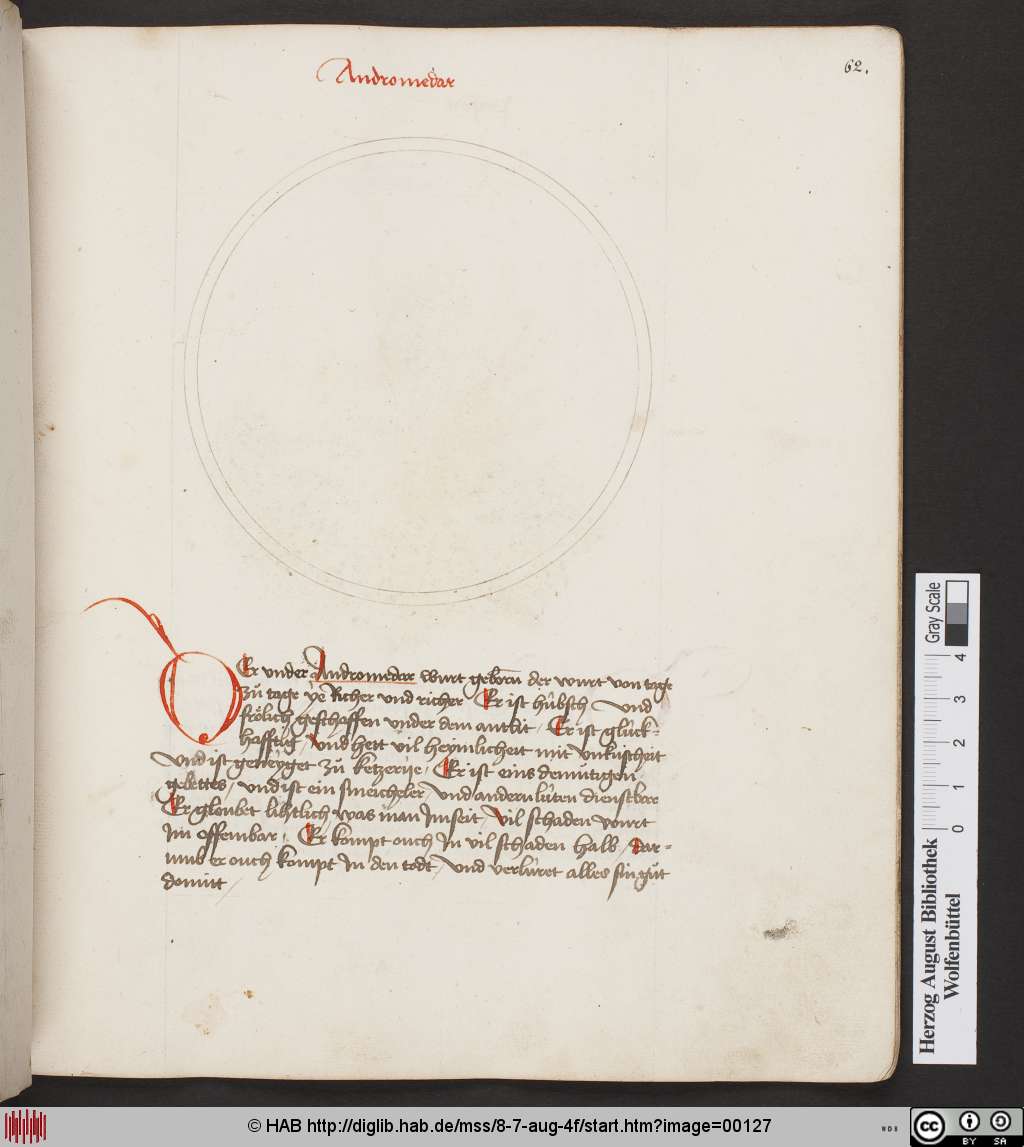 Andromedar
62.
DEr vnder Andromedar wirt geborn der wirt von tage
zů tage ye Richer vnd richer Er ist hübsch vnd
frölich geschaffen vnder dem antlit / Er ist glück-
hafftig / Vnd hett vil heymlicheit mit vnkuscheit
Vnd ist geneyget zů ketzerÿe / Er ist eins demütigen
gebettes / vnd ist ein smeicheler / vnd andern lüten dienstber
Er gloubet lihtlich was man Im seit / Vil schaden würt
Im offembar / Er kompt ouch In vil schaden halb / Dar-
umb er ouch kompt In den todt / vnd verlüret alles sin gůt
domitt /
Gray Scale
0 1 2 3 4
Herzog August Bibliothek
Wolfenbüttel
© HAB http://diglib.hab.de/mss/8-7-aug-4f/start.htm?image=00127
WDB
cc BY SA